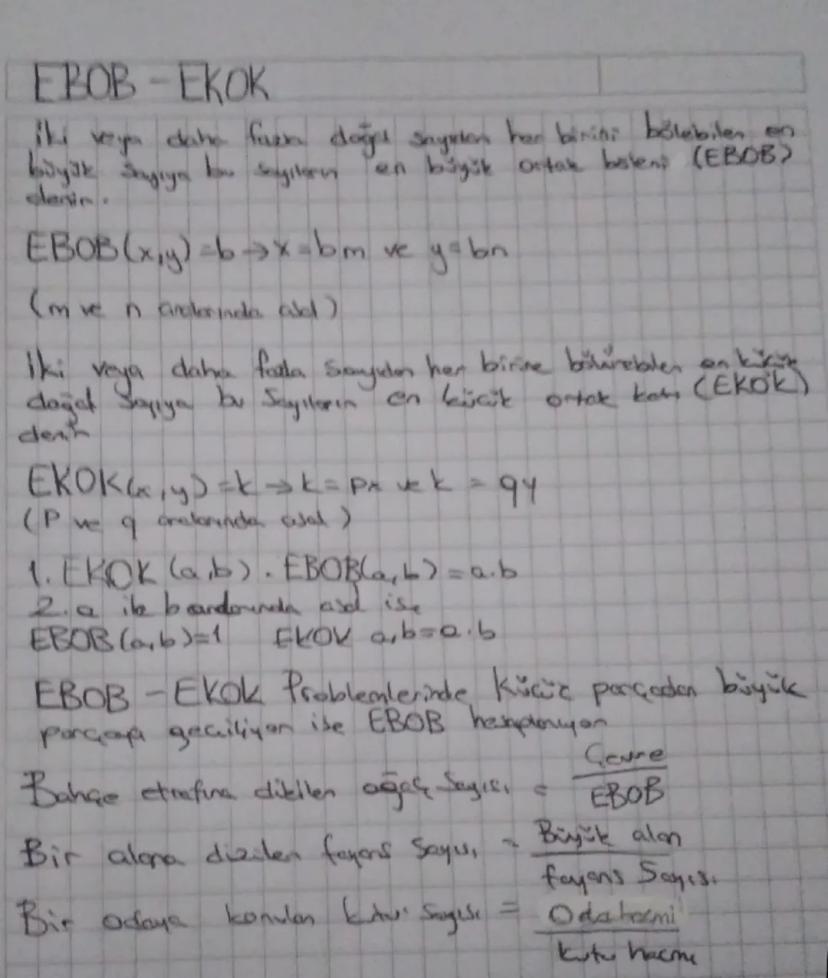 EBOB - EKOK
iki veya daha fazla doğal sayıdan her birini bölebilen en
büyük sayıya bu sayıların en büyük ortak böleni (EBOB)
denir.
EBOB(x,y)=b→x=bm ve y=bn
(m ve n aralarında asal)
iki veya daha fazla sayıdan her birine bölünebilen en küçük
doğal sayıya bu sayıların en küçük ortak katı (EKOK)
denir
EKOK(x,y)=k→k=px ve k=qy
(P ve q aralarında asal)
1. EKOK(a,b).EBOB(a,b)=a.b
2. a ile b aralarında asal ise
EBOB(a,b)=1 EKOK a,b=a.b
EBOB-EKOK Problemlerinde, küçük parçadan büyük
parçaya geçiliyor ise EBOB
Bahçe etrafına dikilen ağaç sayısı = Çevre
EBOB
Bir alana dizilen fayans sayısı = Büyük alan
fayans Sayısı
Bir odaya konulan kutu sayısı = Oda hacmi
kutu hacmi